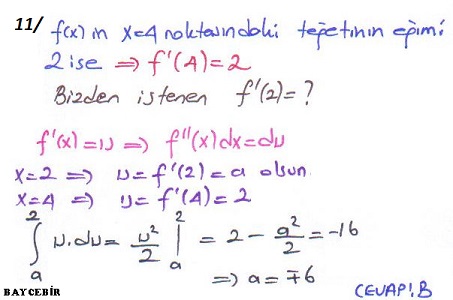 11/ f(x) in x=4 noktasındaki teğetinin eğimi
2 ise ⇒ f'(4)=2
Bizden istenen f'(2)=?
f'(x)=u ⇒ f''(x)dx=du
x=2 ⇒ u=f'(2)=a olsun.
x=4 ⇒ u=f'(4)=2
∫_a^2 u.du = u²/2 |_a^2 = 2 - a²/2 = -16
⇒ a=∓6
BAYCEBİR CEVAP!B